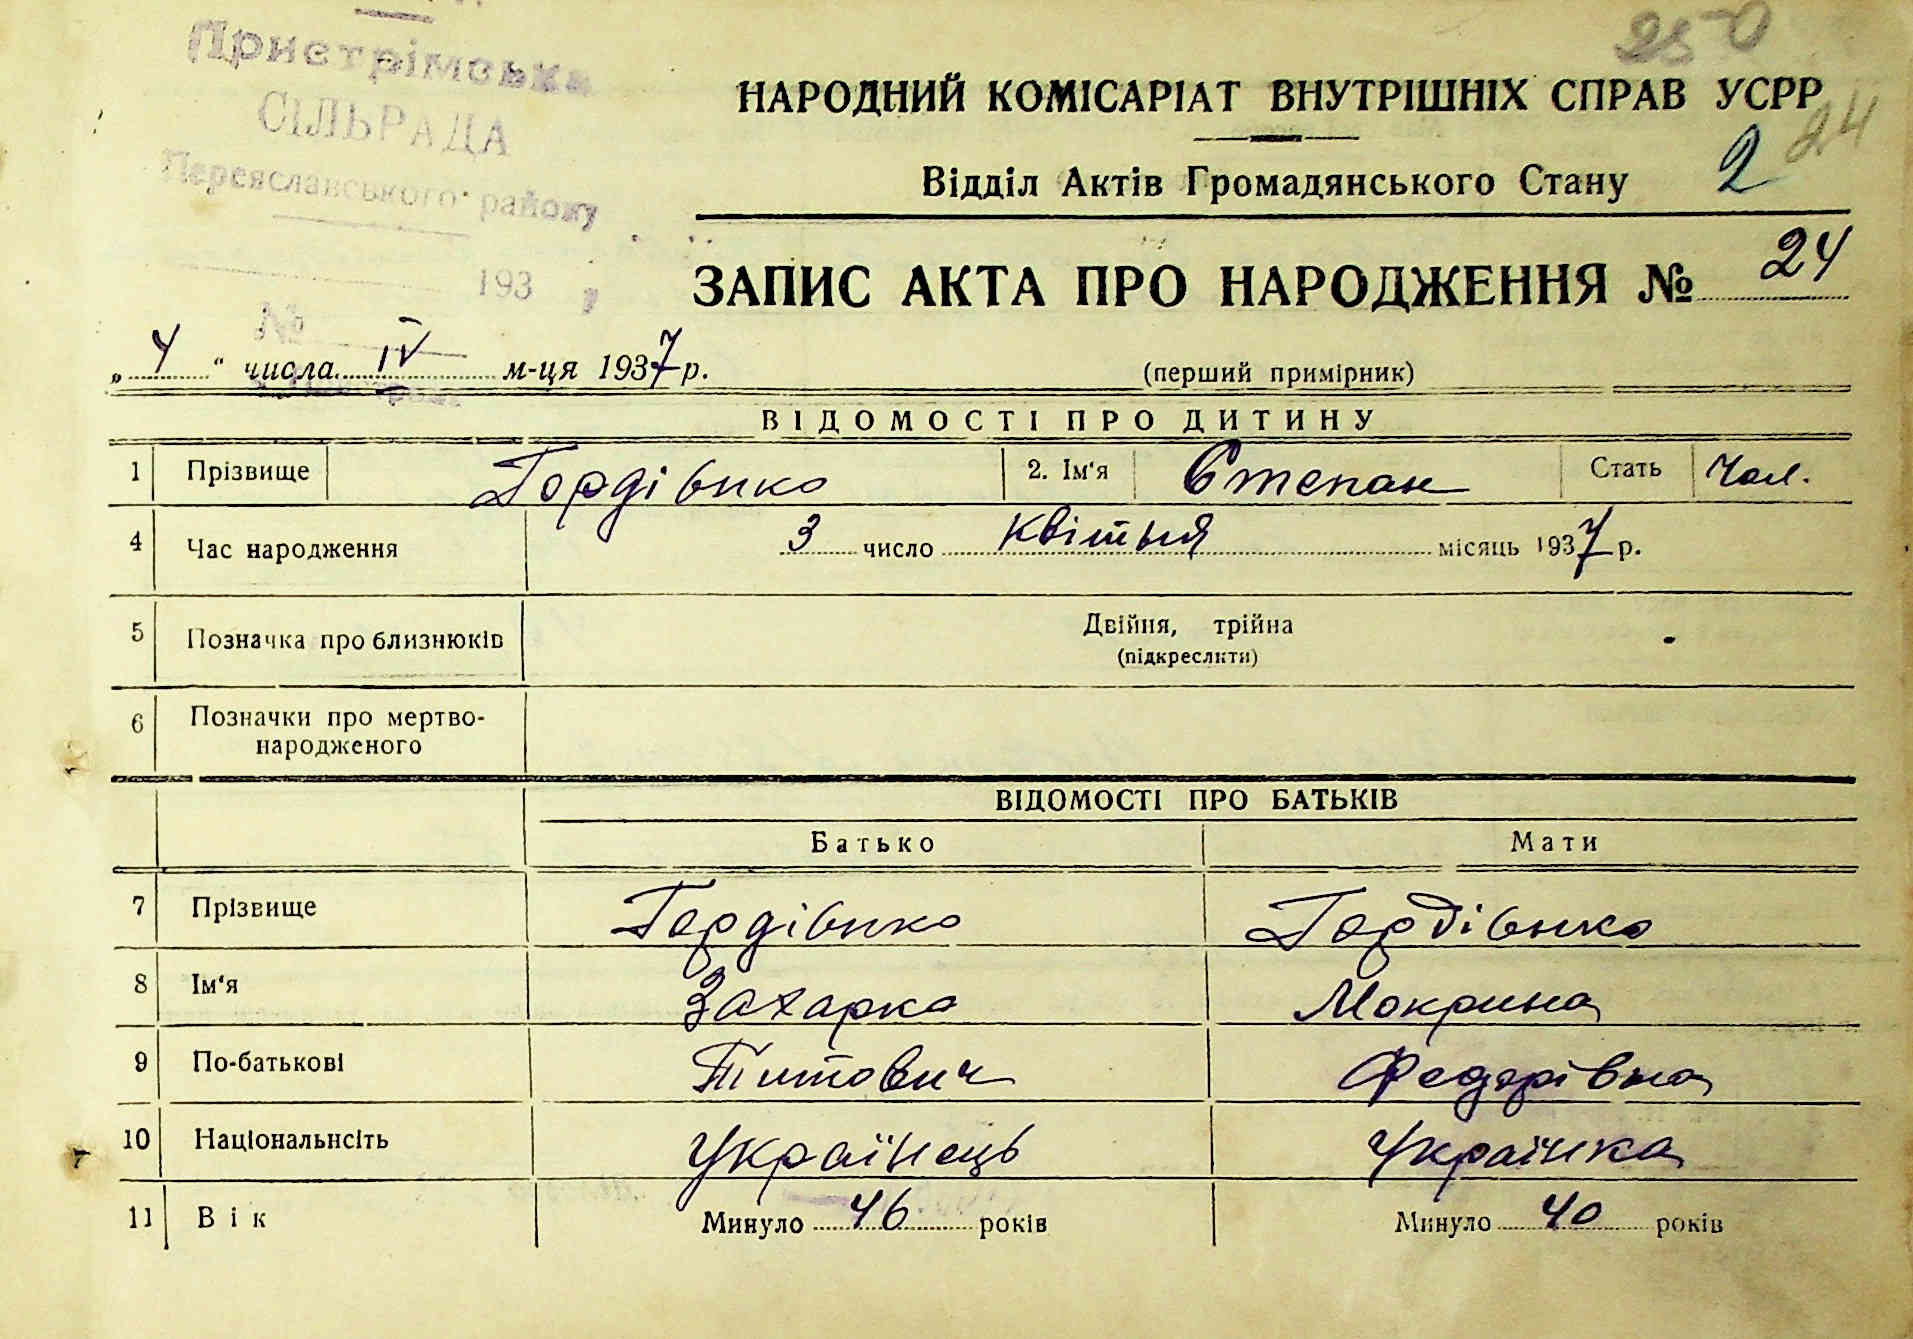 Пристрімська
СІЛЬРАДА
Переяславського району
193
№
250
24
2
НАРОДНИЙ КОМІСАРІАТ ВНУТРІШНІХ СПРАВ УСРР
Відділ Актів Громадянського Стану
ЗАПИС АКТА ПРО НАРОДЖЕННЯ № 24
„ 4 “ числа IV м-ця 1937 р.
(перший примірник)
ВІДОМОСТІ ПРО ДИТИНУ
1 Прізвище Гордієнко 2. Ім'я Степан Стать Чол.
4 Час народження 3 число квітня місяць 1937 р.
5 Позначка про близнюків Двійня, трійна
(підкреслити)
6 Позначки про мертво-
народженого
ВІДОМОСТІ ПРО БАТЬКІВ
Батько Мати
7 Прізвище Гордієнко Гордієнко
8 Ім'я Захарко Мокрина
9 По-батькові Титович Федорівна
10 Національнсіть Українець Українка
11 Вік Минуло 46 років Минуло 40 років